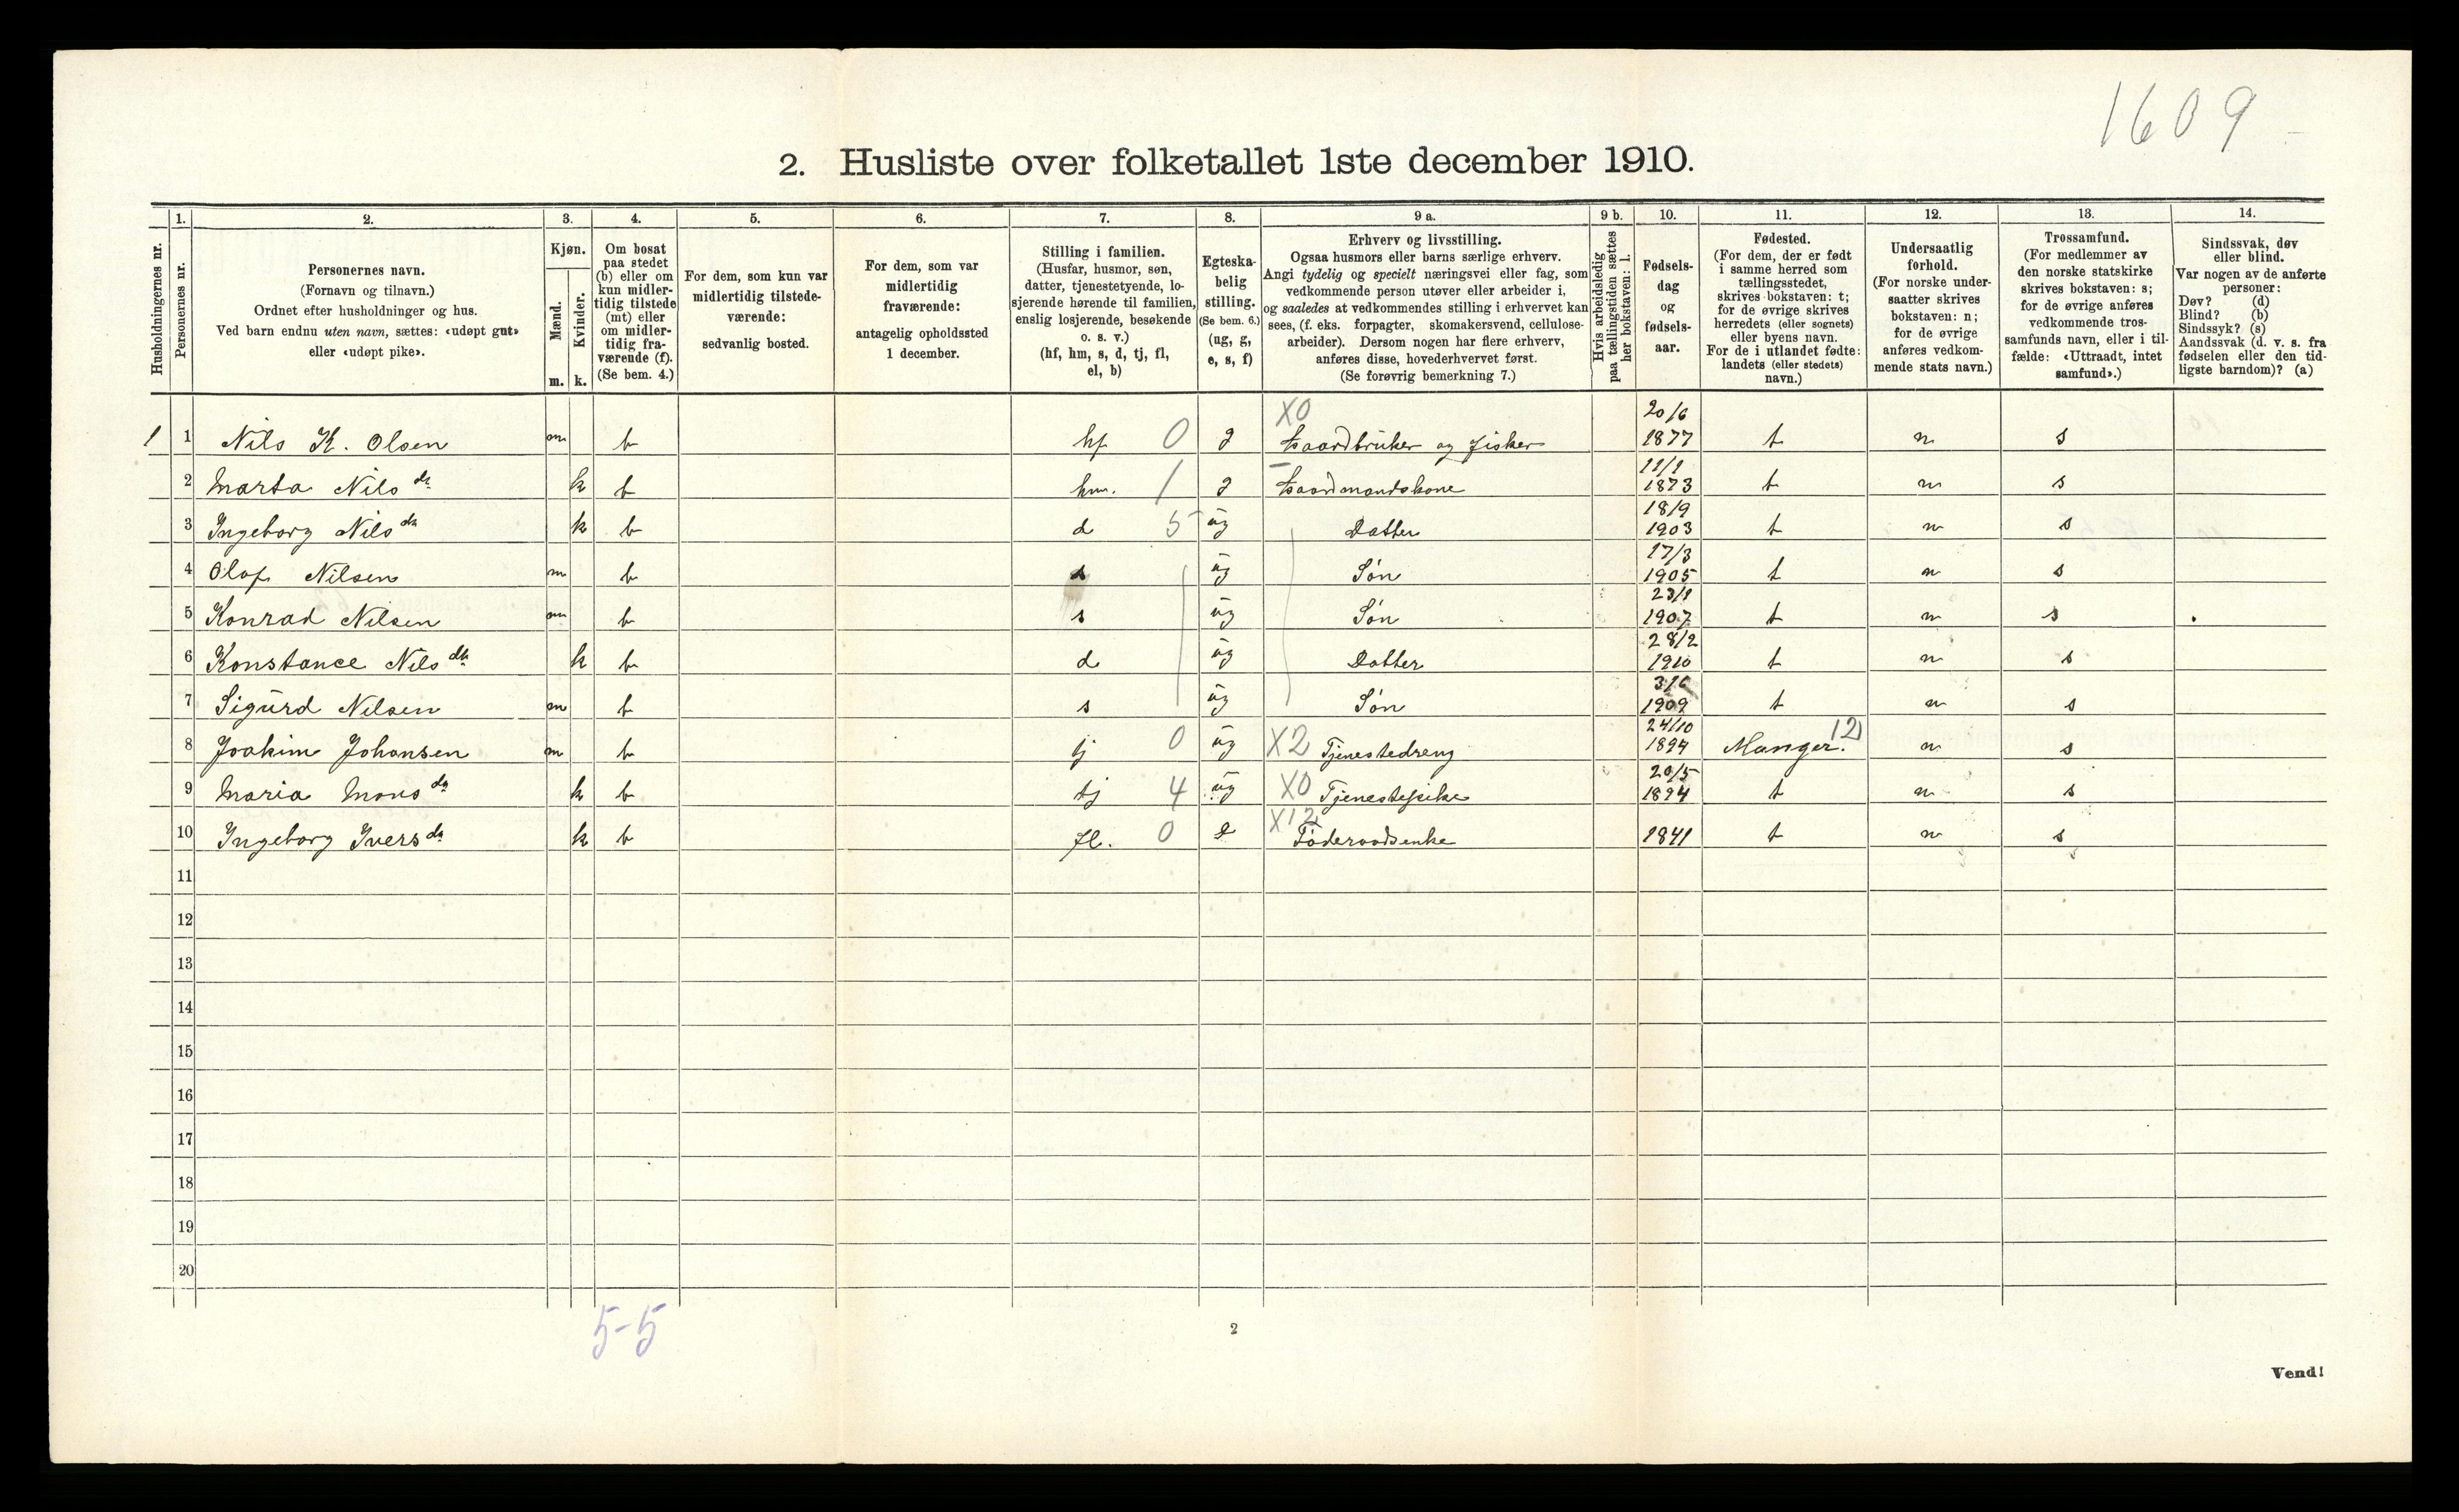 1609
2. Husliste over folketallet 1ste december 1910.
Husholdningernes nr.
1.
Personernes nr.
2.
Personernes navn.
(Fornavn og tilnavn.)
Ordnet efter husholdninger og hus.
Ved barn endnu uten navn, sættes: «udøpt gut»
eller «udøpt pike».
3.
Kjøn.
Mænd.
Kvinder.
m. k.
4.
Om bosat
paa stedet
(b) eller om
kun midler-
tidig tilstede
(mt) eller
om midler-
tidig fra-
værende (f).
(Se bem. 4.)
5.
For dem, som kun var
midlertidig tilstede-
værende:
sedvanlig bosted.
6.
For dem, som var
midlertidig
fraværende:
antagelig opholdssted
1 december.
7.
Stilling i familien.
(Husfar, husmor, søn,
datter, tjenestetyende, lo-
sjerende hørende til familien,
enslig losjerende, besøkende
o. s. v.)
(hf, hm, s, d, tj, fl,
el, b)
8.
Egteska-
belig
stilling.
(Se bem. 6.)
(ug, g,
e, s, f)
9 a.
Erhverv og livsstilling.
Ogsaa husmors eller barns særlige erhverv.
Angi tydelig og specielt næringsvei eller fag, som
vedkommende person utøver eller arbeider i,
og saaledes at vedkommendes stilling i erhvervet kan
sees, (f. eks. forpagter, skomakersvend, cellulose-
arbeider). Dersom nogen har flere erhverv,
anføres disse, hovederhvervet først.
(Se forøvrig bemerkning 7.)
9 b.
Hvis arbeidsledig
paa tællingstiden sættes
her bokstaven: l.
10.
Fødsels-
dag
og
fødsels-
aar.
11.
Fødested.
(For dem, der er født
i samme herred som
tællingsstedet,
skrives bokstaven: t;
for de øvrige skrives
herredets (eller sognets)
eller byens navn.
For de i utlandet fødte:
landets (eller stedets)
navn.)
12.
Undersaatlig
forhold.
(For norske under-
saatter skrives
bokstaven: n;
for de øvrige
anføres vedkom-
mende stats navn.)
13.
Trossamfund.
(For medlemmer av
den norske statskirke
skrives bokstaven: s;
for de øvrige anføres
vedkommende tros-
samfunds navn, eller i til-
fælde: «Uttraadt, intet
samfund».)
14.
Sindssvak, døv
eller blind.
Var nogen av de anførte
personer:
Døv? (d)
Blind? (b)
Sindssyk? (s)
Aandssvak (d. v. s. fra
fødselen eller den tid-
ligste barndom)? (a)
1 1 Nils K. Olsen m b hf 0 g X0 Gaardbruker og fisker 20/6 1877 t n s
2 Marta Nilsdr k b hm. 1 g Gaardmandskone 11/1 1873 t n s
3 Ingeborg Nilsdr k b d 5 ug Datter 18/9 1903 t n s
4 Olaf Nilsen m b s ug Søn 17/3 1905 t n s
5 Konrad Nilsen m b s ug Søn 23/1 1907 t n s
6 Konstance Nilsdr k b d ug Datter 28/2 1910 t n s
7 Sigurd Nilsen m b s ug Søn 3/6 1909 t n s
8 Joakim Johansen m b tj 0 ug X2 Tjenestedreng 24/10 1894 Manger. 12 n s
9 Maria Monsdr k b tj 4 ug X0 Tjenestepike 20/5 1894 t n s
10 Ingeborg Iversdr k b fl. 0 e X12 Føderaadsenke 1841 t n s
11
12
13
14
15
16
17
18
19
20
5-5
2
Vend!